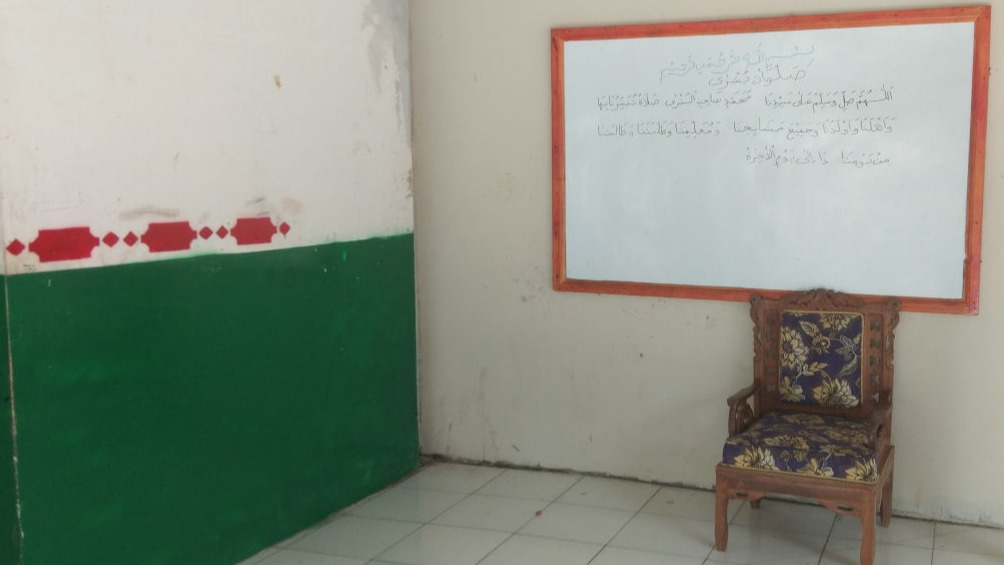 بسم الله الرحمن الرحيم
صَلَوَاتْ بُشْرَى
اَللّٰهُمَّ صَلِّ وَسَلِّمْ عَلَى سَيِّدِنَا مُحَمَّدٍ صَاحِبِ الْبُشْرَى صَلَاةً تُبَشِّرُنَا بِهَا
وَاَهْلَنَا وَاَوْلَادَنَا وَجَمِيْعَ مَشَايِخِنَا وَمُعَلِّمِيْنَا وَطَلَبَتَنَا وَطَالِبَاتِنَا
مِنْ يَوْمِنَا هٰذَا اِلَى يَوْمِ الْآخِرَةْ